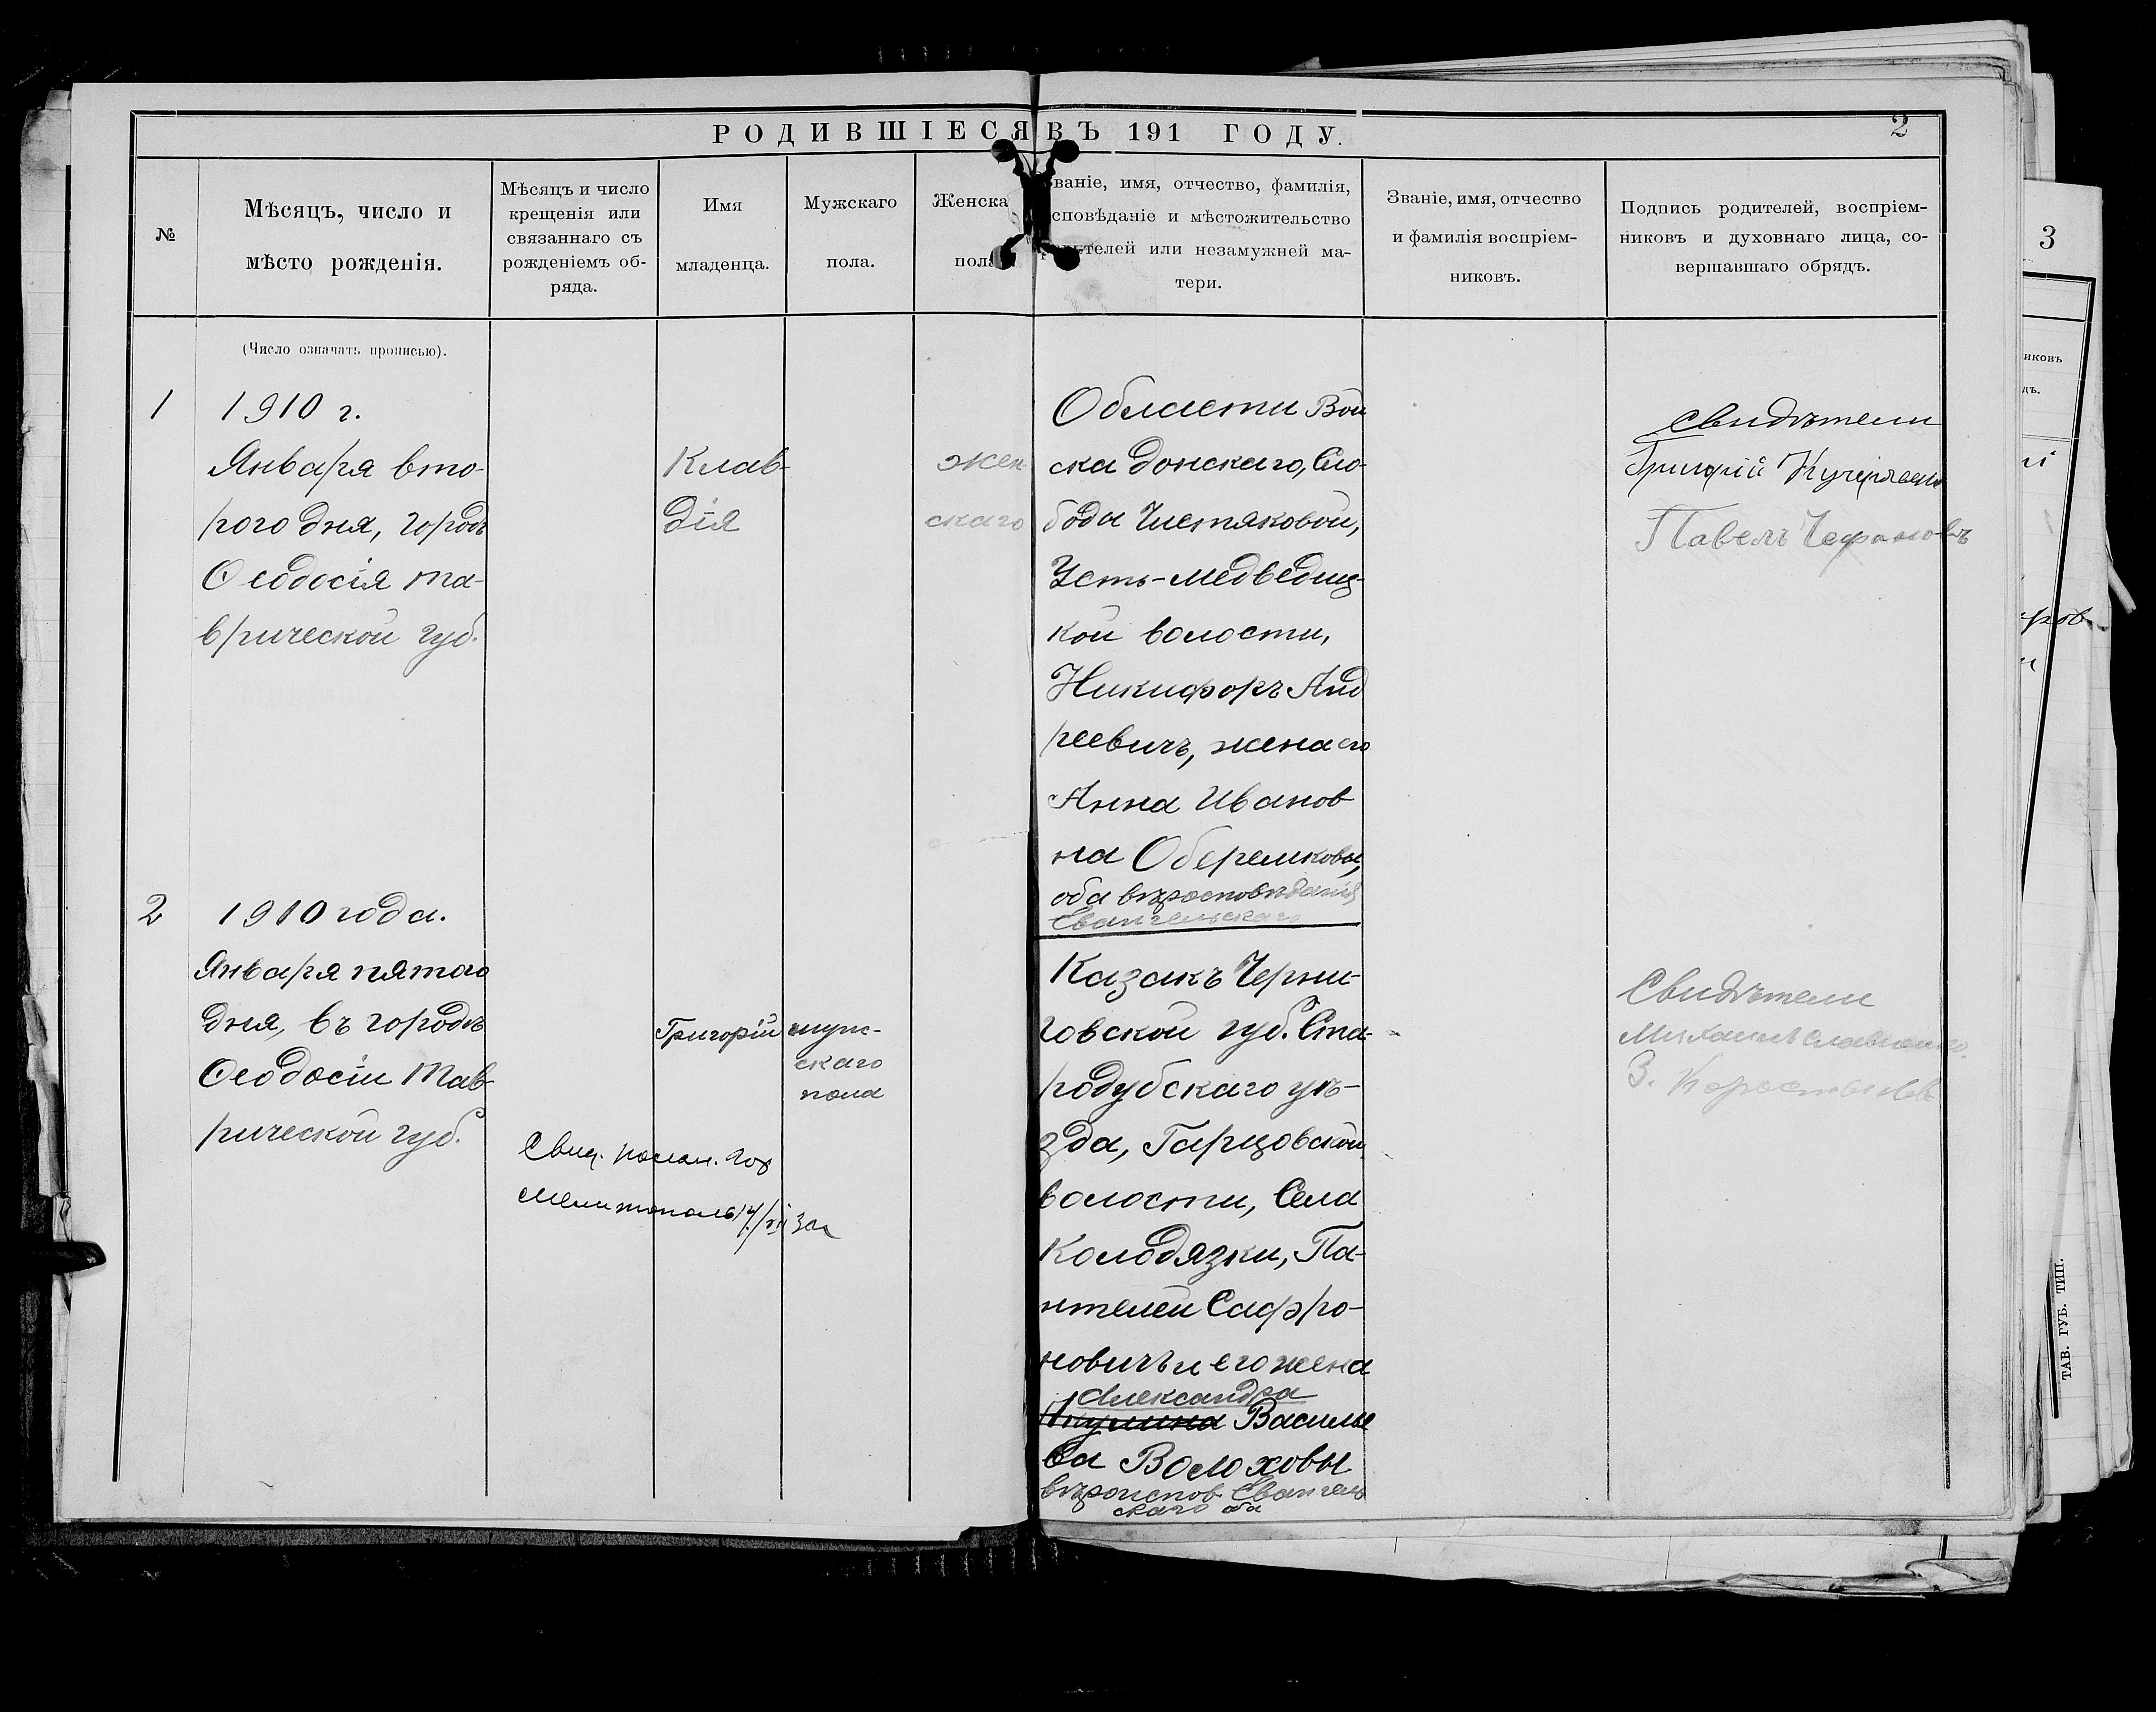 РОДИВШІЕСЯ ВЪ 191 ГОДУ.
2
№
Мѣсяцъ, число и
мѣсто рожденія.
Мѣсяцъ и число
крещенія или
связаннаго съ
рожденіемъ об-
ряда.
Имя
младенца.
Мужскаго
пола.
Женска
пола
званіе, имя, отчество, фамилія,
сповѣданіе и мѣстожительство
родителей или незамужней ма-
тери.
Званіе, имя, отчество
и фамилія воспріем-
никовъ.
Подпись родителей, воспріем-
никовъ и духовнаго лица, со-
вершавшаго обрядъ.
(Число означать прописью).
1
1910 г.
Января вто-
рого дня, городъ
Ѳеодосія Та-
врической губ.
Клав-
дія
жен-
скаго
Области Вой
ска Донскаго, Сло-
бода Чистяковой,
Усть-Медведиц-
кой волости,
Никифоръ Анд
реевичъ, жена его
Анна Иванов
на Оберемковы,
оба вѣроисповѣданія
Евангельскаго
Свидѣтели
Григорій
Павелъ
2
1910 года.
Января пятого
дня, въ городѣ
Ѳеодосіи Тав-
рической губ.
Григорій
муж-
скаго
пола
Казакъ Черни-
говской губ. Ста-
родубскаго уѣ-
зда, Гарцовской
волости, Села
Колодязки, Па-
нтелей Сафро-
новичъ и его жена
Александра
Акулина Василье
ва Волоховы
вѣроиспов. Евангель
скаго оба
Свидѣтели
Михаилъ
З. Коростылевъ
Мелитополь
3
иковъ
дъ.
ТАВ. ГУБ. ТИП.